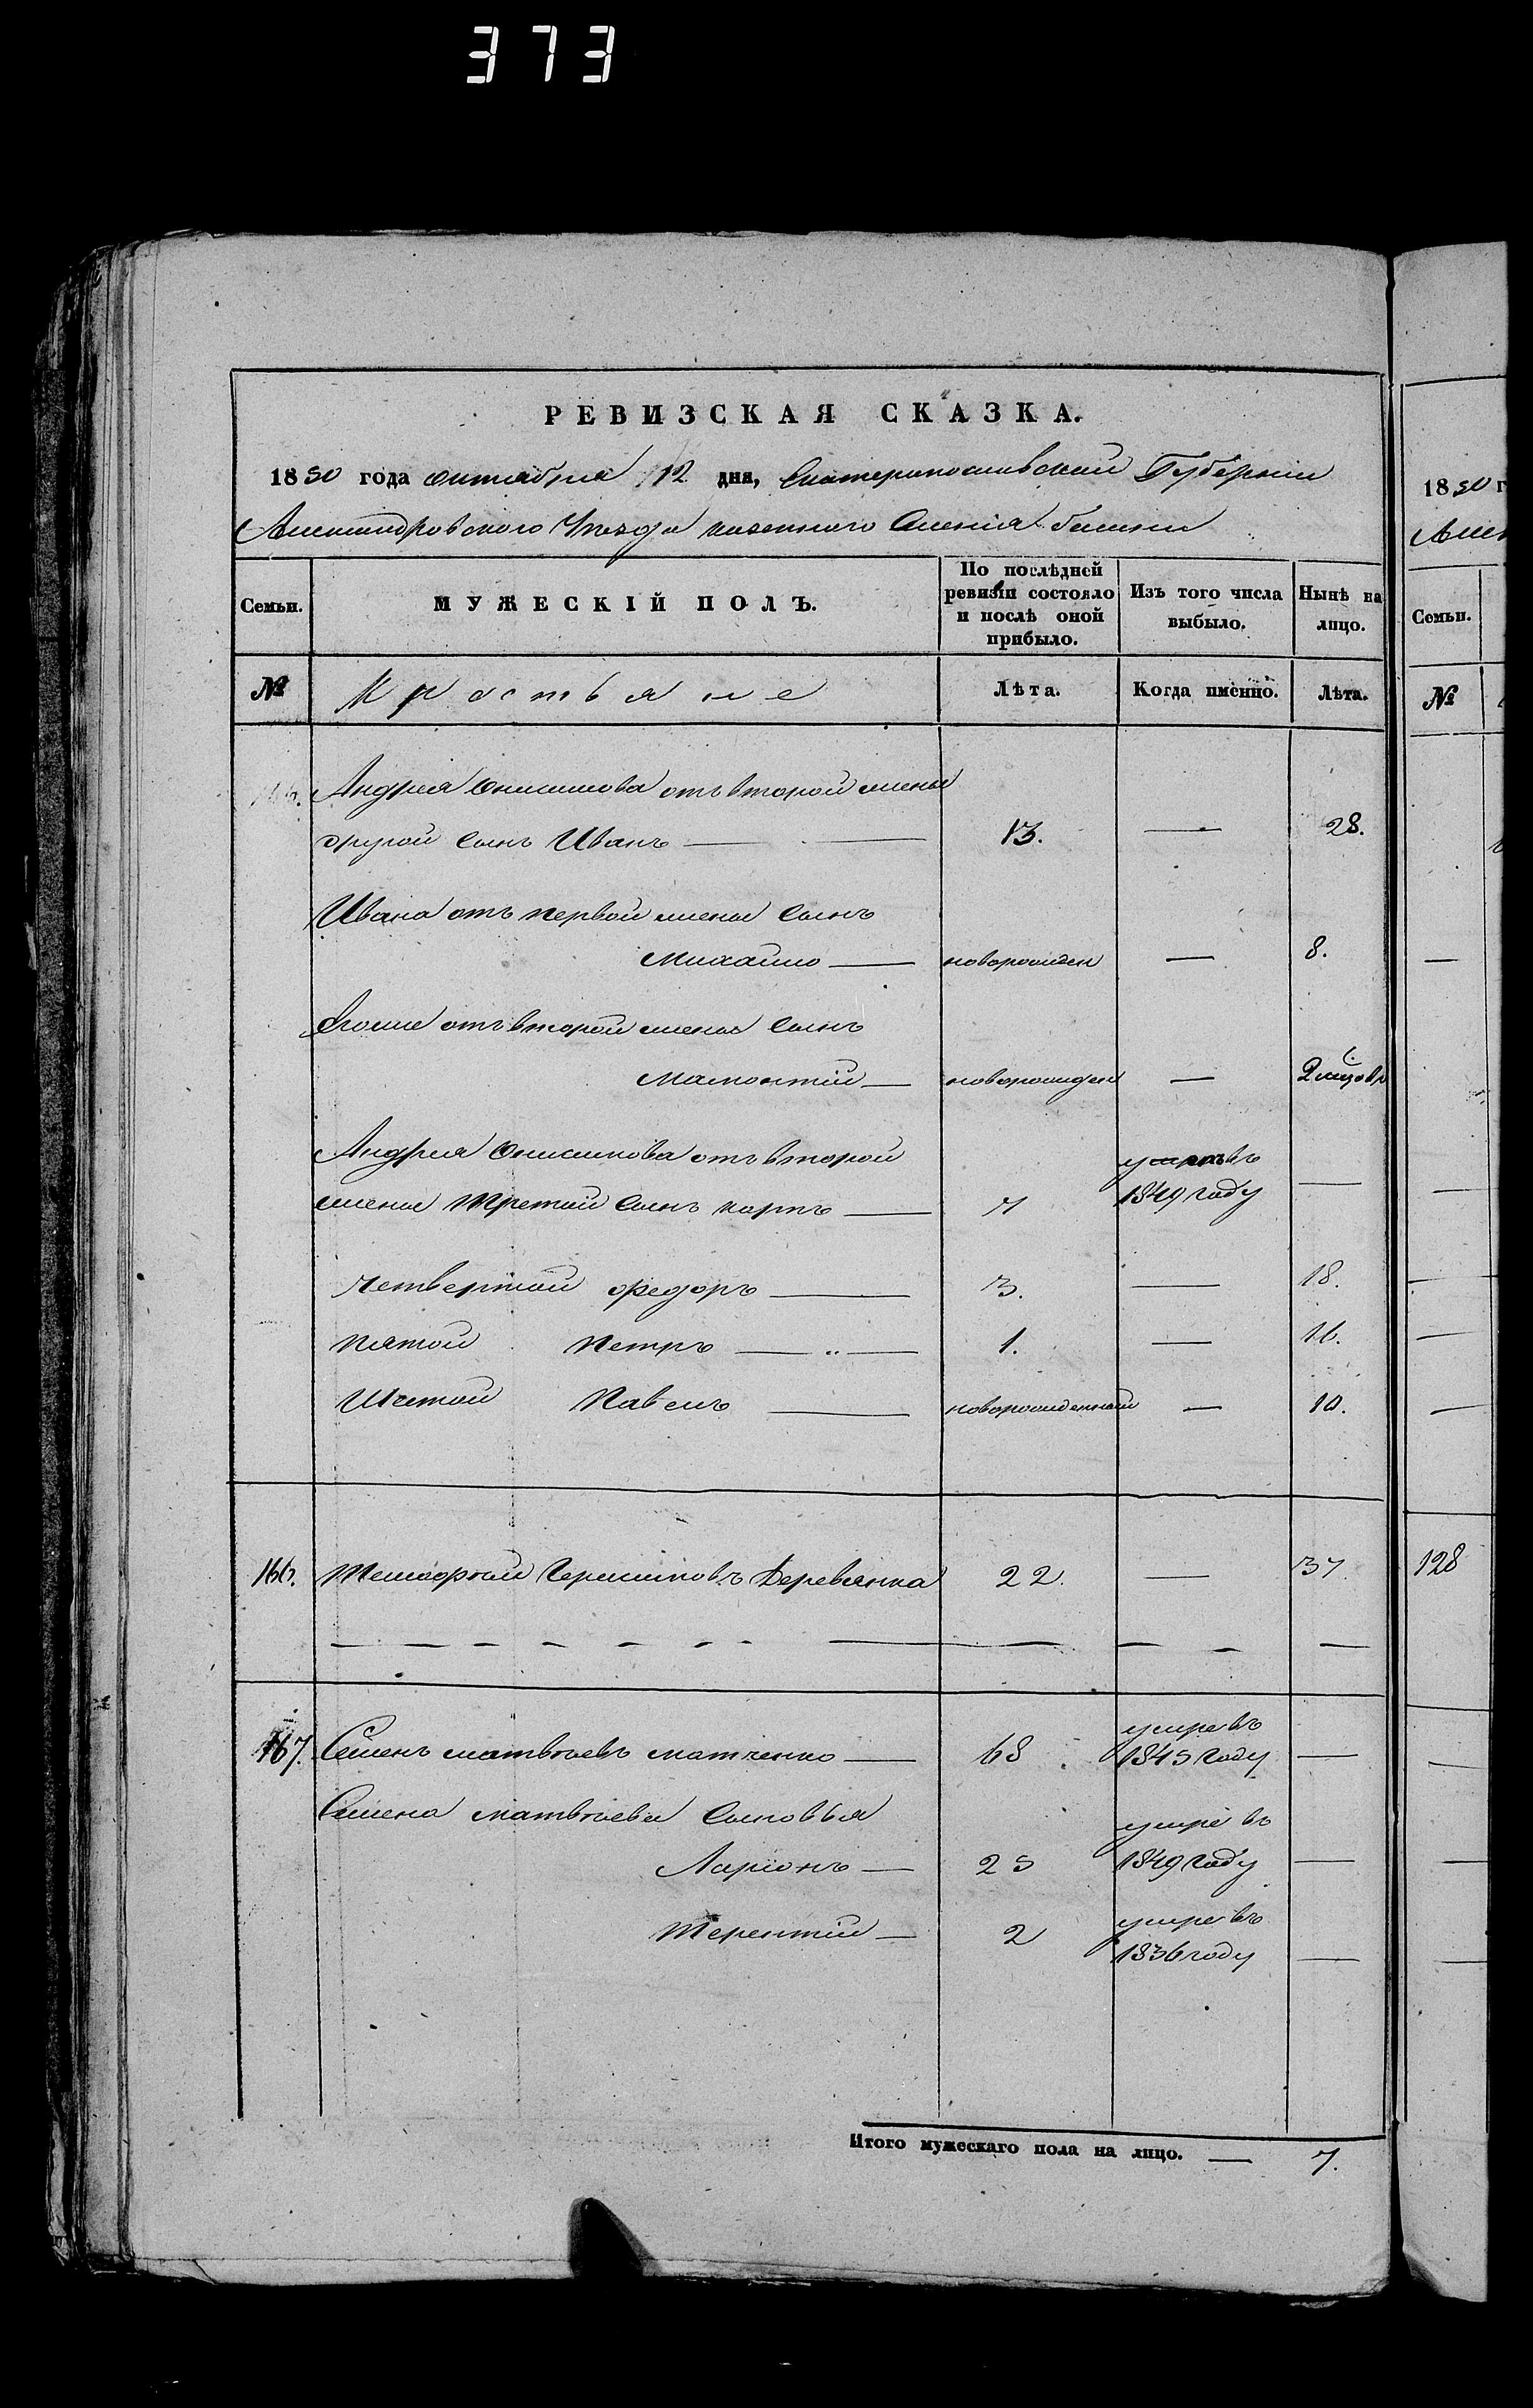 373
РЕВИЗСКАЯ СКАЗКА.
1850 года октября 12 дня, Екатеринославской Губернии
Александровского Уезда казенного Селения
Семьи. МУЖЕСКІЙ ПОЛЪ. По послѣдней ревизіи состояло и послѣ оной прибыло. Изъ того числа выбыло. Нынѣ на лицо.
№ Крестьяне Лѣта. Когда именно. Лѣта.
Андрея Онисимова отъ второй жены
другой сынъ Иванъ 13. — 28.
Ивана отъ первой жены сынъ
Михайло — новорожден — 8.
Егоже отъ второй жены сынъ
Мамонтій — новорожден — 2
Андрея Онисимова отъ второй умре въ
жены третій сынъ Карпъ — 7 1849 году —
четвертой Федоръ — 3. — 18.
пятой Петръ — 1. — 16.
Шестой Павелъ — новорожденный — 10.
166. Тимофей Деревянка 22. — 37
167. Семенъ Матвѣевъ Матченко — 68 умре въ 1845 году —
Семена Матвѣева сыновья
Ларіонъ — 25 умре въ 1849 году —
Терентій — 2 умре въ 1836 году —
Итого мужескаго пола на лицо. — 7.
1850 г
Семьи.
№
128